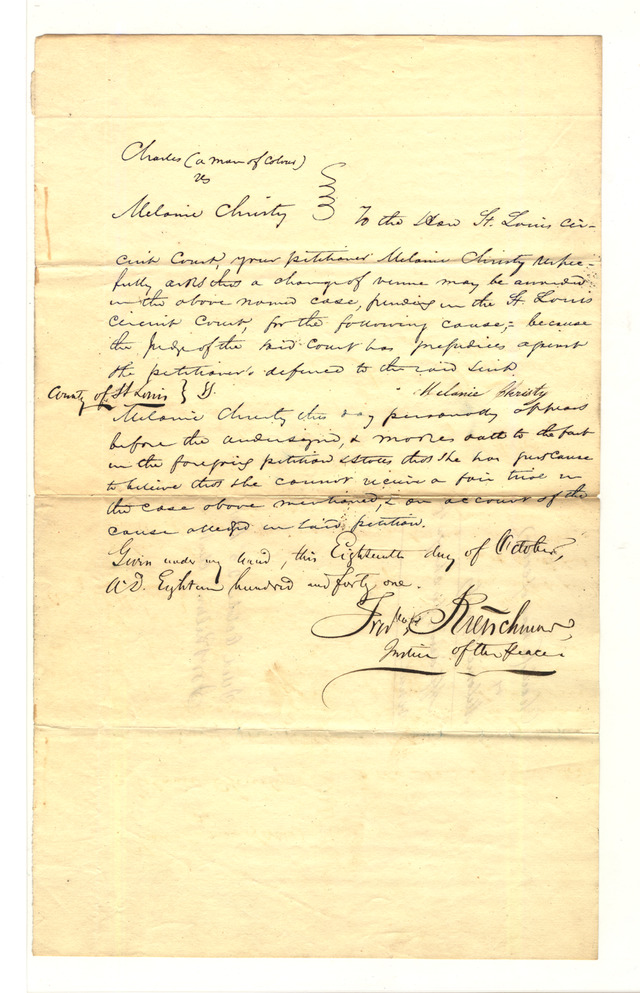 Charles (a man of Colour)
vs
Melanie Christy
To the Hon St. Louis cir-
cuit Court, your petitioner Melanie Christy respec-
fully asks that a change of venue may be awarded
in the above named case, pending in the St Louis
circuit Court, for the following cause;= because
the Judge of the said Court has prejudices against
the petitioner's defence to the said suit.
Melanie Christy
County of St Louis } SS.
Melanie Christy this day personally appears
before the undersigned, & makes oath to the fact
in the foregoing petition & states that She has just cause
to believe that she cannot receive a fair trial in
the case above mentioned, & on account of the
cause alleged in said petition.
Given under my hand, this Eighteenth day of October,
A.D. Eighteen hundred and forty one.
Fredk Kretschmar,
Justice of the Peace